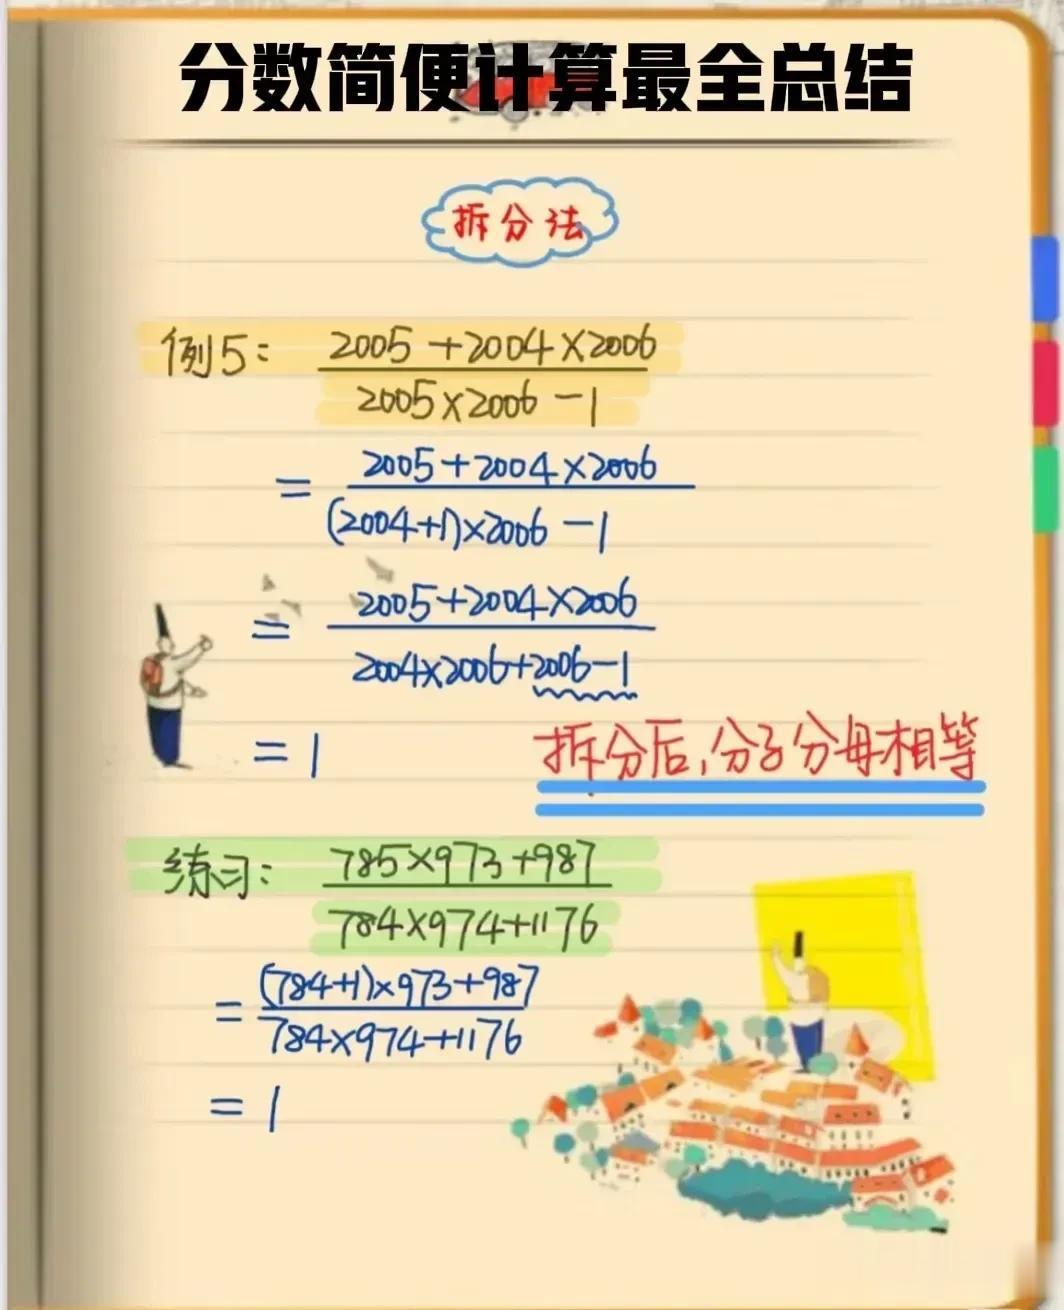 分数简便计算最全总结
拆分法
例5: 2005+2004×2006
2005×2006-1
= 2005+2004×2006
(2004+1)×2006-1
= 2005+2004×2006
2004×2006+2006-1
=1 拆分后,分子分母相等
练习: 785×973+987
784×974+1176
= (784+1)×973+987
784×974+1176
=1